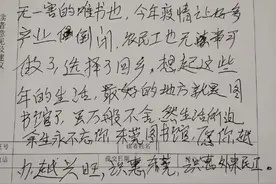 无一害的唯书也，今年疫情让好多
产业倒闭，农民工也无事可
做了，选择了回乡，想起这些
年的生活，最好的地方就是图
书馆了，万般不舍，然生活所迫
余生永不忘你，东莞图书馆，愿你越
办越兴旺，识惠东莞，识惠外来民工。